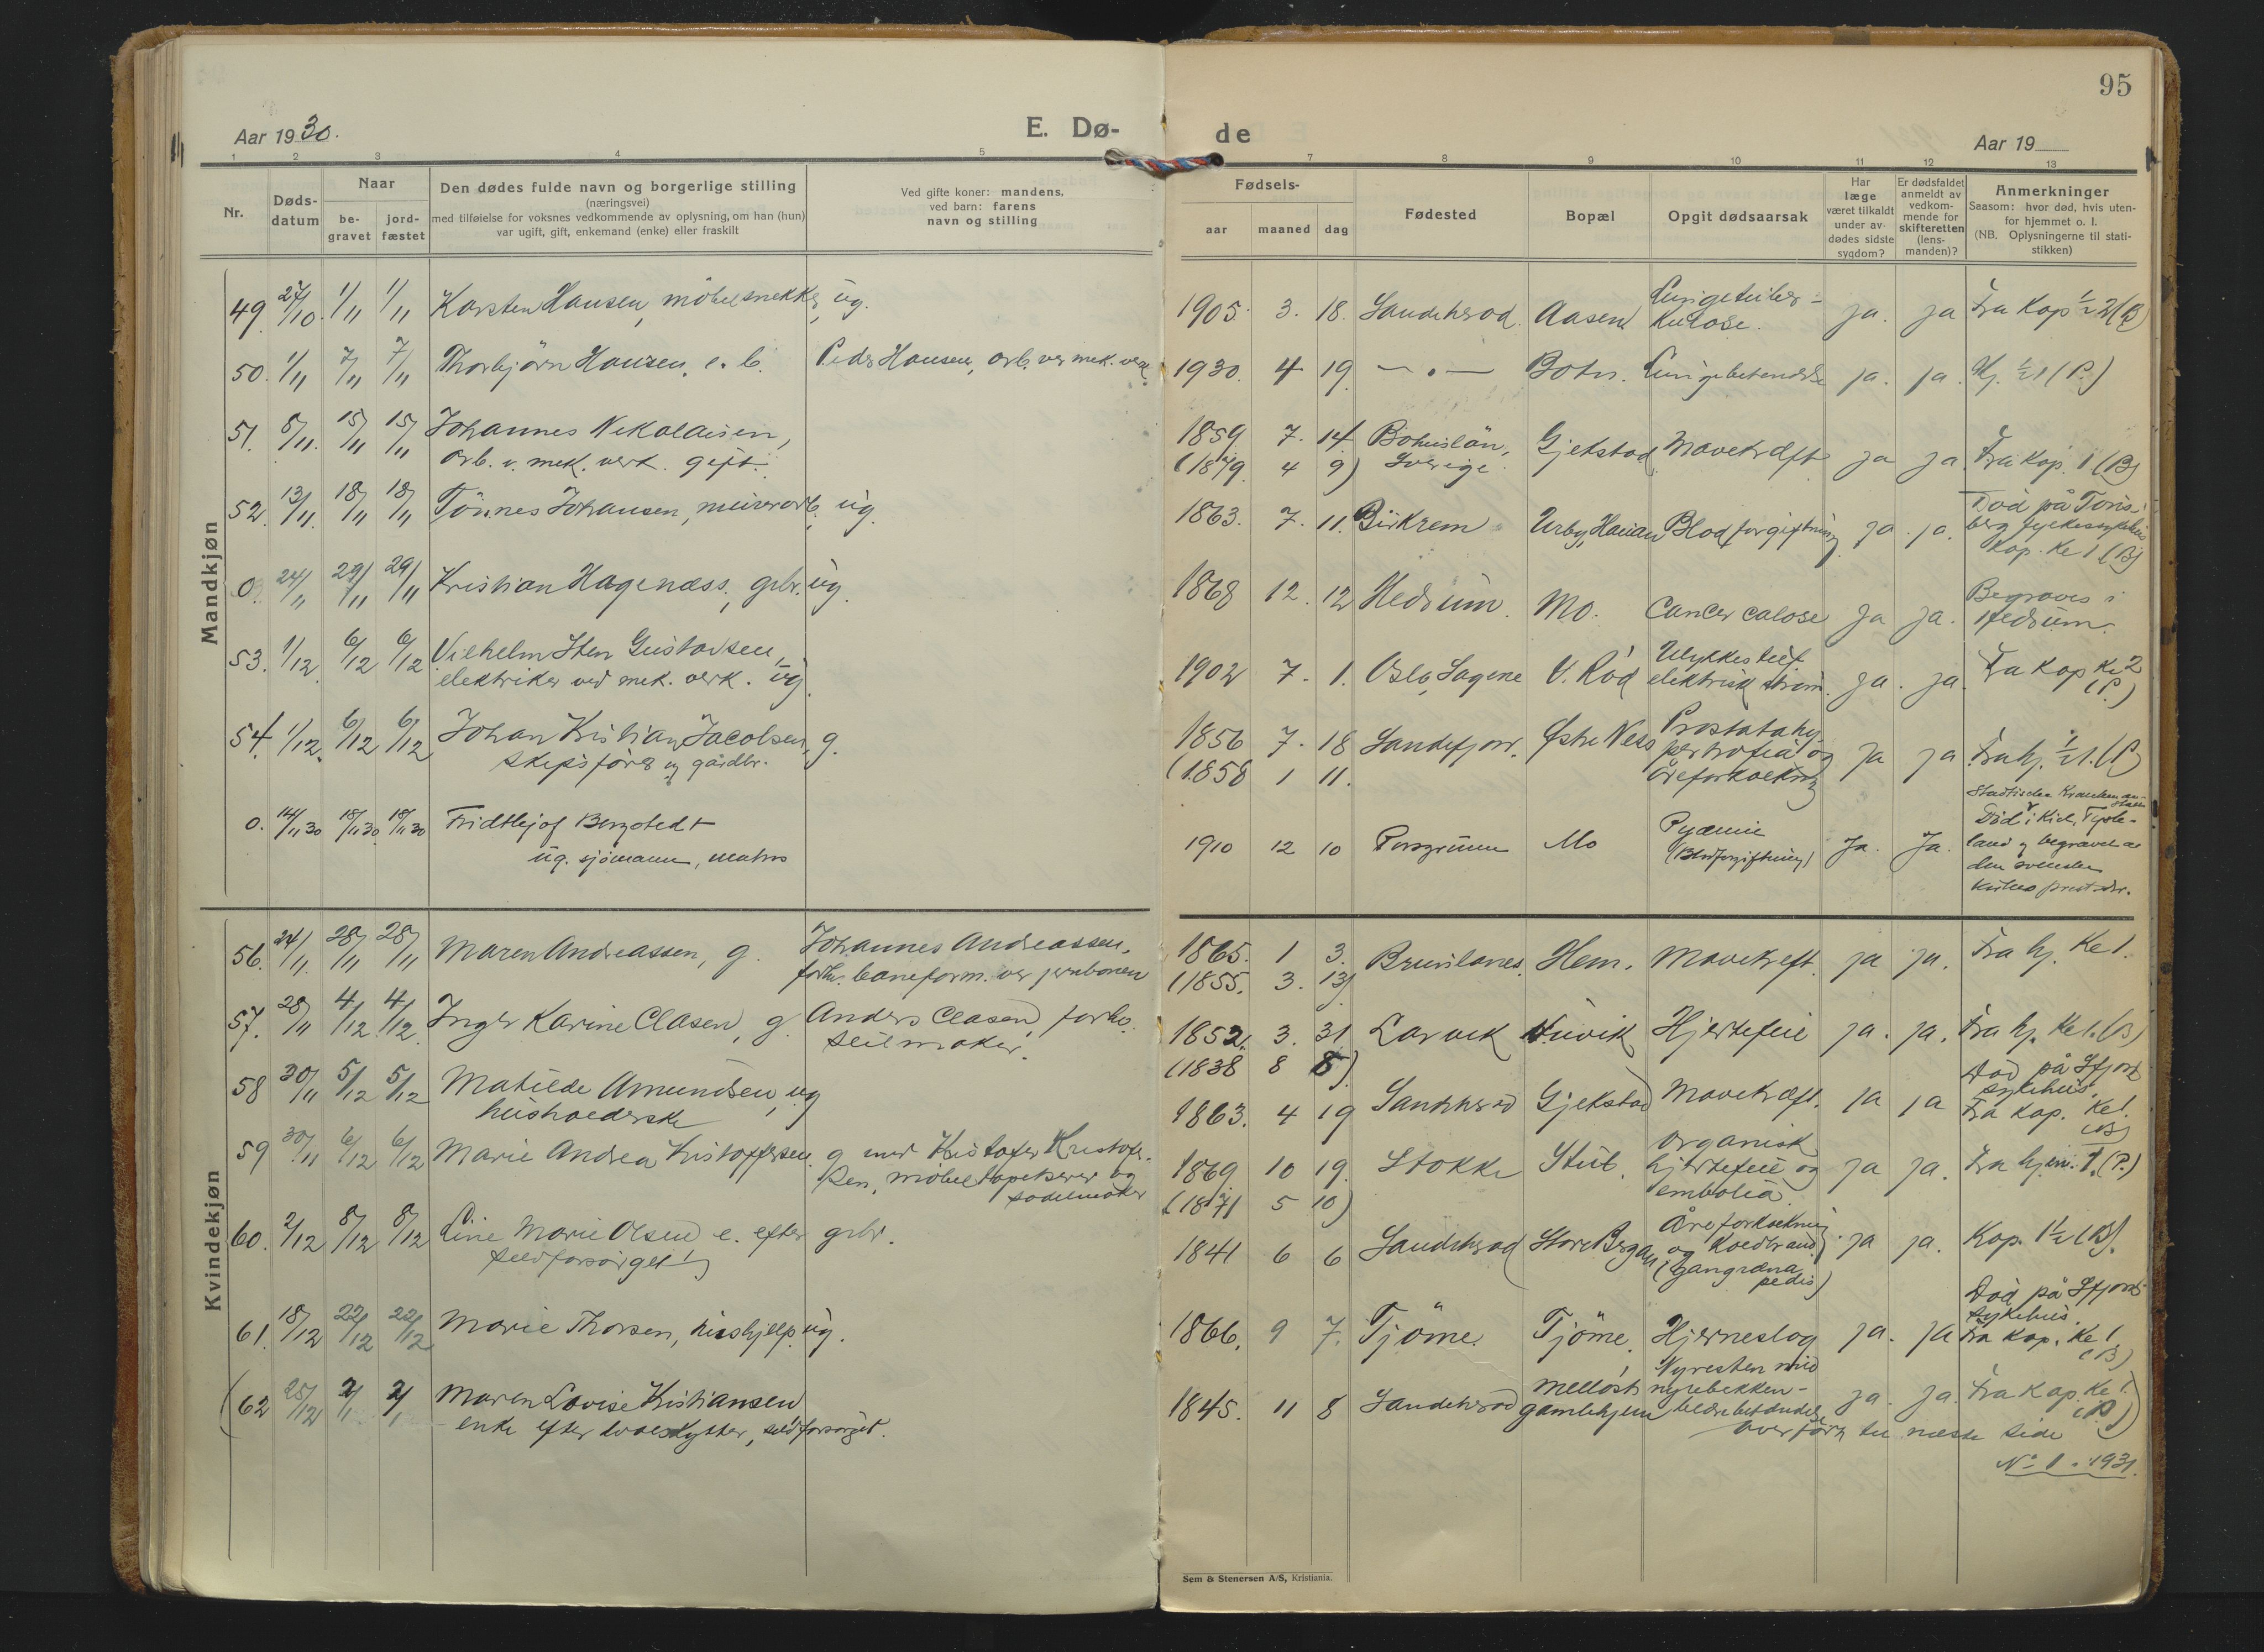 95
Aar 1930.
E. Dø-
de
Aar 19
1 2 3 4 5
7 8 9 10 11 12 13
Nr.
Døds-
datum
Naar
be-
gravet
jord-
fæstet
Den dødes fulde navn og borgerlige stilling
(næringsvei)
med tilføielse for voksnes vedkommende av oplysning, om han (hun)
var ugift, gift, enkemand (enke) eller fraskilt
Ved gifte koner: mandens,
ved barn: farens
navn og stilling
Fødsels-
aar
maaned
dag
Fødested
Bopæl
Opgit dødsaarsak
Har
læge
været tilkaldt
under av-
dødes sidste
sygdom?
Er dødsfaldet
anmeldt av
vedkom-
mende for
skifteretten
(lens-
manden)?
Anmerkninger
Saasom: hvor død, hvis uten-
for hjemmet o. l.
(NB. Oplysningerne til stati-
stikken)
Mandkjøn
49. 27/10. 1/11 1/11 Karsten Hansen, möbelsnekker, ug.
1905. 3. 18. Sandeherad. Aasen Lungetuber-
kulose. ja. ja Fra Kap
50. 1/11 7/11 7/11 Thorbjörn Hansen, e. b. Peder Hansen, arb. ved mek. verk.
1930. 4 19. — " — Botn. Lungebetendelse ja. ja. Hj. ½ 1 (P.)
51. 8/11. 15/11 15/11 Johannes Nikolaisen,
arb. v. mek. verk. gift.
1859 7. 14 Bohuslän, Gjekstad Mavekræft ja ja. Fra Kap. 1 (B)
(1879 4 9) Sverige.
52. 13/11. 18/11 18/11 Tönnes Johansen, murerarb. ug.
1863. 7. 11. Birkrem Urby, Haugan Blodforgiftning ja. ja. Död på Töns-
berg fylkessykehus
Kap. Kl 1 (B)
0. 24/11 29/11 29/11 Kristian Hagenæss, gbr. ug.
1868 12. 12 Hedrum. Mo. Cancer ja ja. Begraves i
Hedrum.
53. 1/12. 6/12 6/12 Vilhelm Sten Gustavsen,
elektriker ved mek. verk. ug.
1902 7. 1. Oslo, Sagene V. Röd Ulykkestilf.
elektrisk ström. ja. ja. Fra Kap Kl 2
(P.)
54. 1/12. 6/12 6/12 Johan Kristian Jacobsen, g.
skipsförer og gårdbr.
1856 7. 18 Sandefjord. Østre Nes Prostatahy-
pertrofia og
åreforkalkning ja ja Fra hj. ½ 1. (P)
(1858 1 11.
0. 14/11 30 18/11 30 18/11 30 Fridthjof Bergstedt
ug. sjömann, matros
1910 12 10 Porsgrunn Mo Pyæmie
(Blodforgiftning) Ja. Ja. Städtische Krankenan-
stalt
Död i Kiel, Tysk-
land og begravet av
den svenske
kirkes prest der.
Kvindekjøn
56. 24/11. 28/11 28/11 Maren Andreassen, g. Johannes Andreassen,
forhv. baneform. ved jernbanen
1865. 1 3. Brunlanes. Hem. Mavekreft. ja ja. Fra hj. Kl 1.
(1855. 3. 13)
57. 28/11 4/12 4/12. Inger Karine Clasen, g. Anders Clasen, forhv.
seilmaker.
1852. 3. 31 Larvik Huvik Hjertefeil ja. ja. Fra hj. Kl 1. (B)
(1838 8 8)
58 30/11 5/12 5/12 Matilde Amundsen, ug
husholderske
1863. 4 19 Sandeherad Gjekstad Mavekræft. ja ja Död på Sfjord
sykehus.
Fra Kap. Kl 1.
(B)
59 30/11 6/12 6/12 Marie Andrea Kristoffersen. g med Kristofer Kristofer-
sen, möbeltapetserer og
sadelmaker
1869 10 19. Stokke Stub. Organisk
hjertefeil og
embolia ja ja. Fra hjem. 1. (P.)
(1871 5 10)
60. 2/12 8/12 8/12 Line Marie Olsen e. efter gbr.
selvforsörget
1841 6 6 Sandeherad Store Bergan Åreforkalkning
og Koldbrand
(gangræna
pedis) ja ja. Kap. 1½ (B).
61. 18/12 22/12 22/12 Marie Thorsen, hushjelp. ug.
1866. 9 7. Tjöme. Tjöme. Hjerneslag ja. ja Död på Sfjord
sykehus.
Fra Kap. Kl 1
(B)
(62 25/12 2/1 2/1 Maren Lovise Kristiansen
enke efter hvalskytter, selvforsörget.
1845. 11 8 Sandeherad Mellöst
gamlehjem Nyresten med
nyrebekken-
ja. ja. Fra Kap Kl 1.
(P)
Overfört til næste side
No 1. 1931.
Sem & Stenersen A/S, Kristiania.